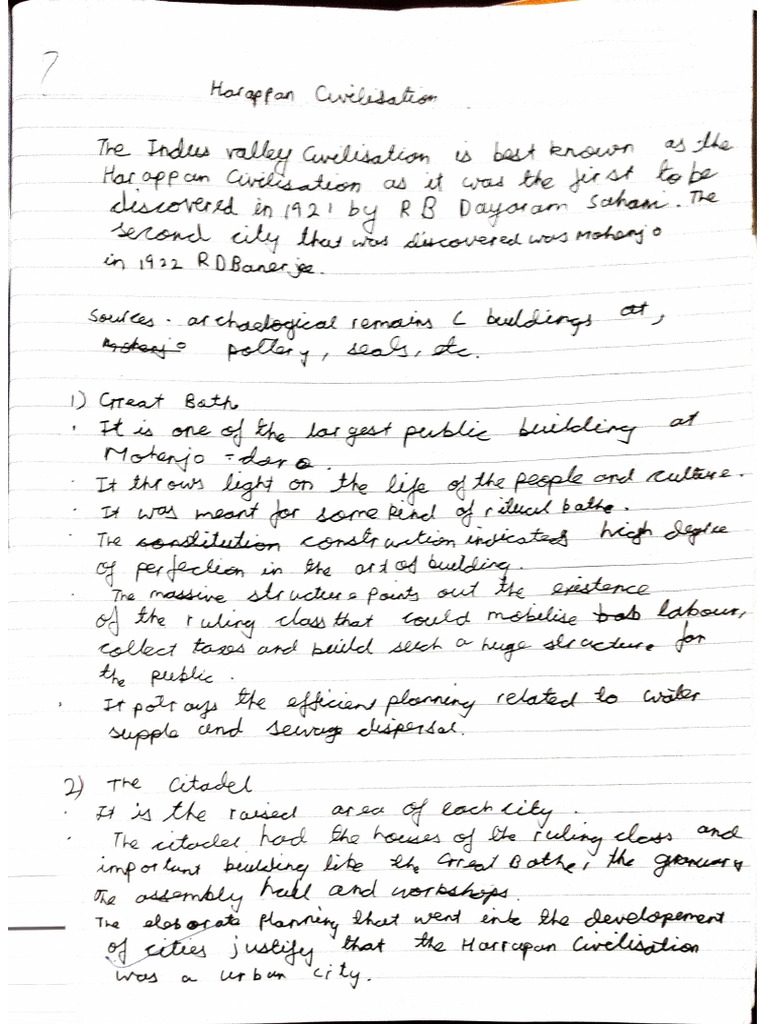 ?
Harappan Civilisation
The Indus valley Civilisation is best known as the
Harappan Civilisation as it was the first to be
discovered in 1921 by R B Dayaram Sahani. The
second city that was discovered was Mohenjo
in 1922 R D Banerjee.
Sources - archaelogical remains ( buildings at,
Mohenjo pottery, seals, etc.
1) Great Bath
. It is one of the largest public building at
Mohenjo-daro.
. It throws light on the life of the people and culture.
. It was meant for some kind of ritual bathe.
. The constitution construction indicates high degree
of perfection in the art of building.
. The massive structure points out the existence
of the ruling class that could mobilise labour,
collect taxes and build such a huge structure for
the public.
. It potrays the efficient planning related to water
supple and sewage dispersal.
2) The Citadel
. It is the raised area of each city.
. The citadel had the houses of the ruling class and
important building like the Great Bathe, the granary
the assembly hall and workshops.
The elaborate planning that went into the developement
of cities justify that the Harrapan Civilisation
was a urban city.